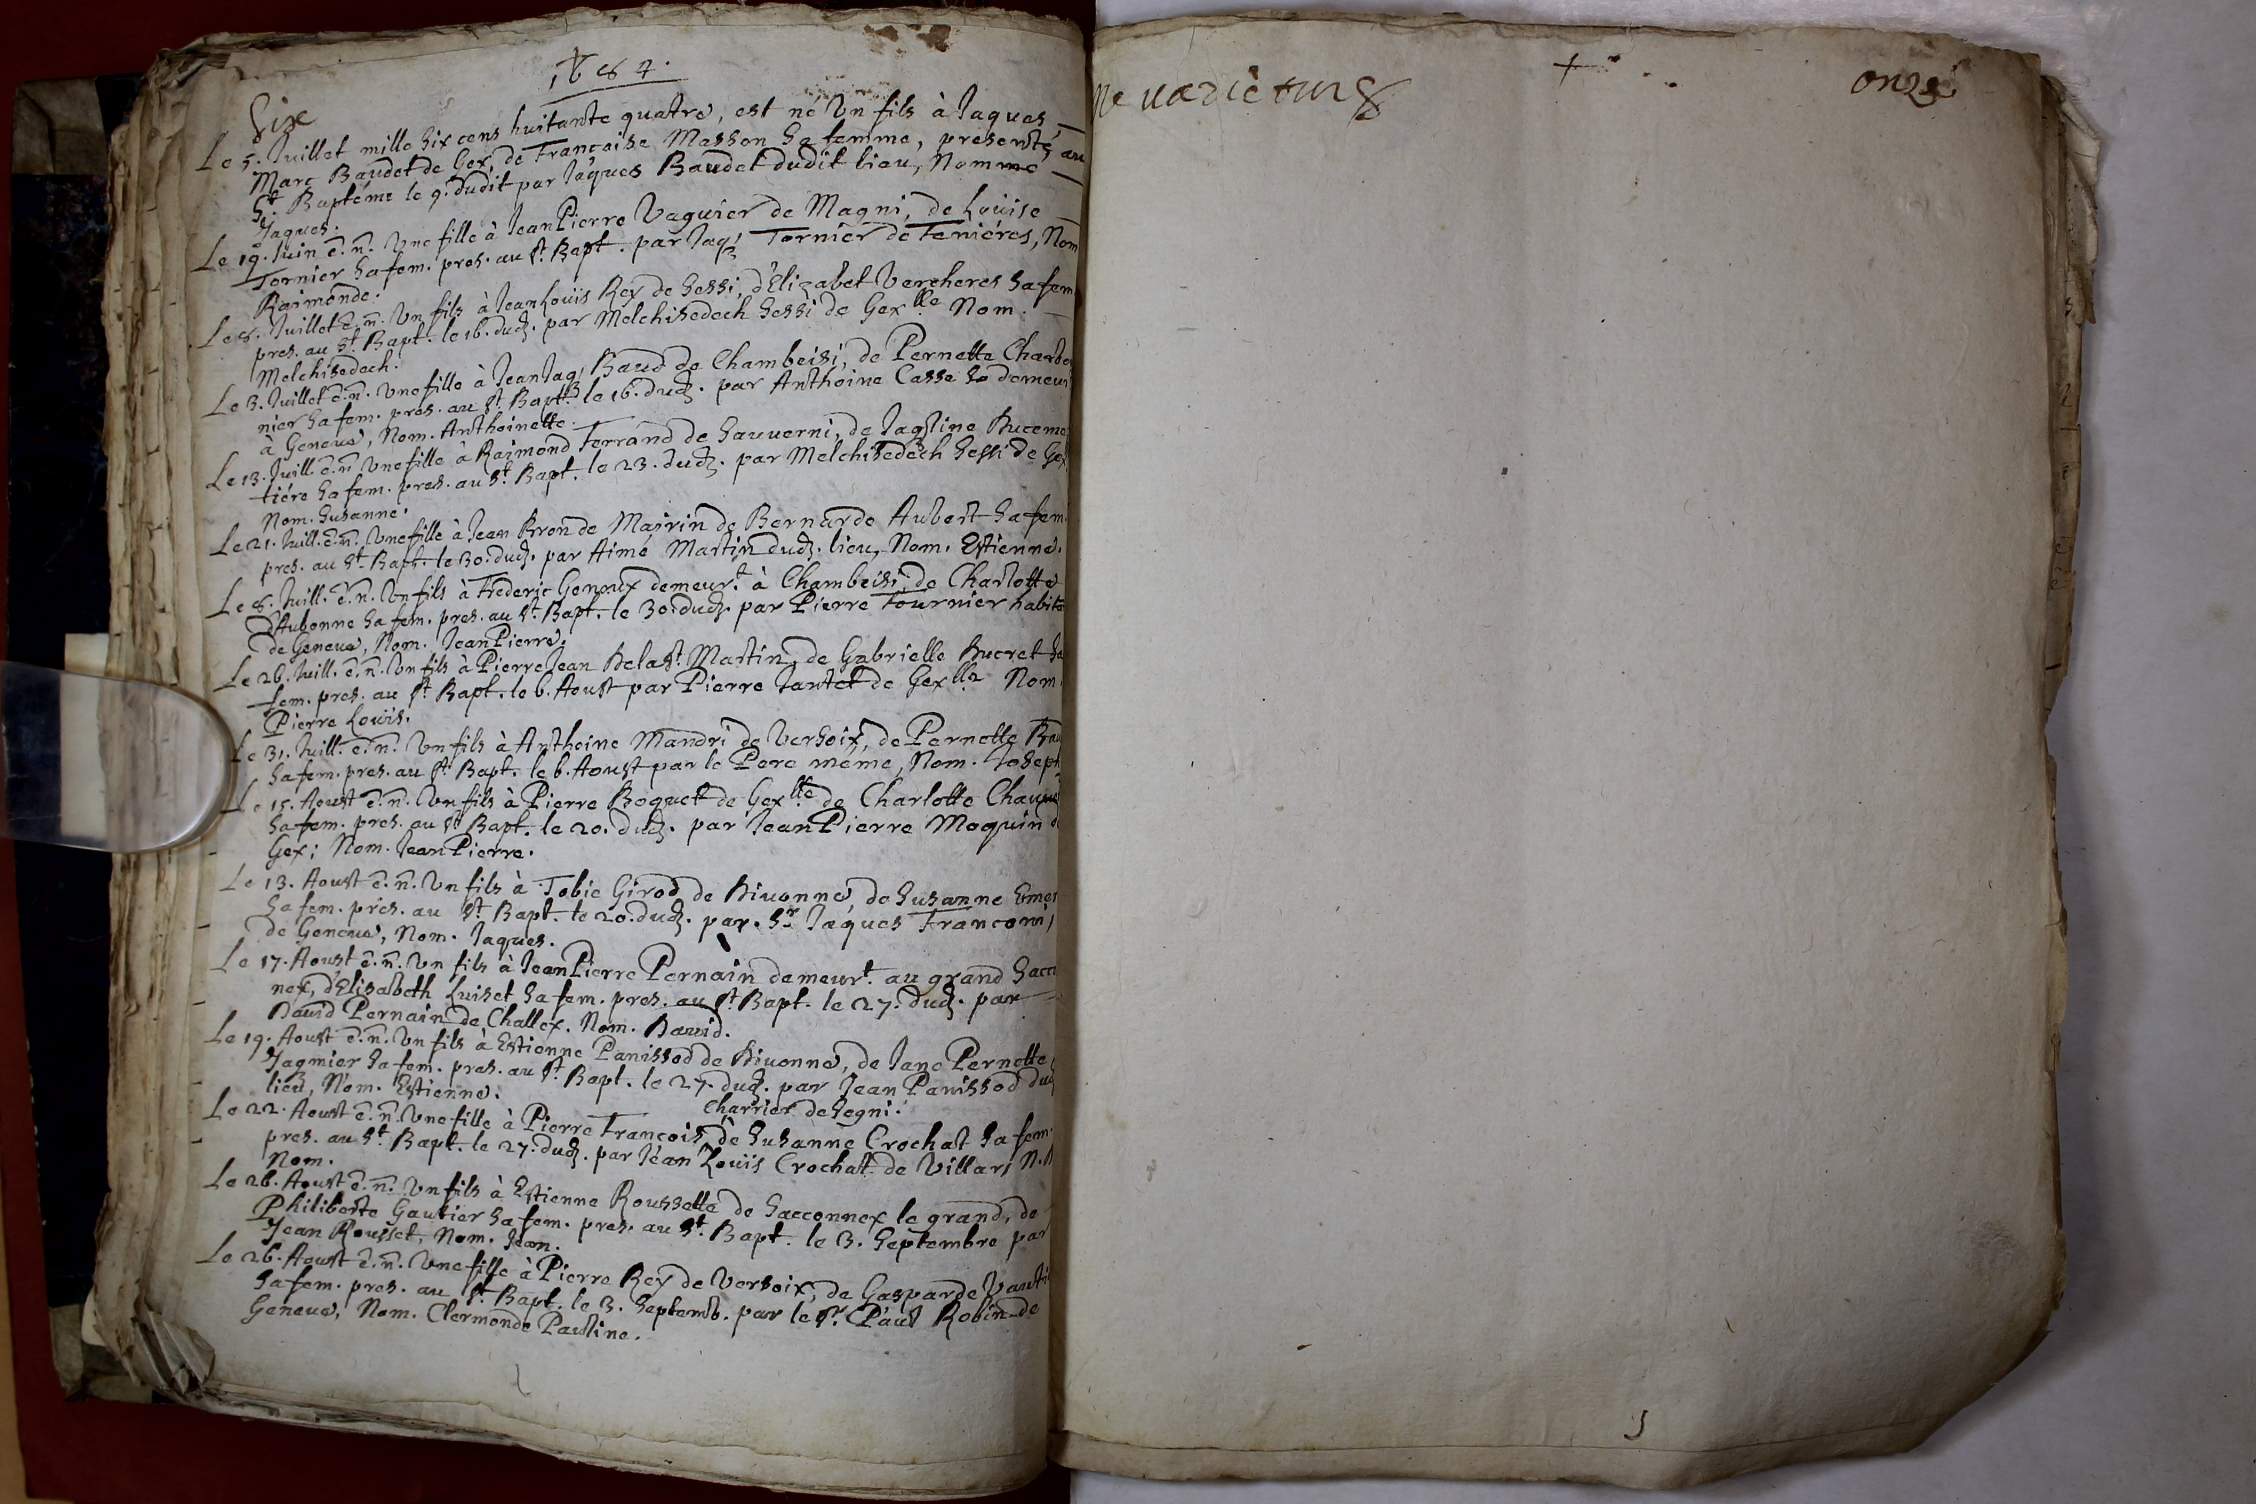 1684.
Six
Le 5. Juillet mille six cens huitante quatre, est né Un fils à Jaques
Marc Baudet de Gex, de Françoise Masson sa femme, presenté au
St. Baptéme le 9. dudit par Jaques Baudet dudit lieu, Nommé
Jaques.
Le 19. Juin e. n. Une fille à Jean Pierre Vaguier de Magni, de Loüise
Tornier sa fem. pres. au St. Bapt. par Jaq. Tornier de Feniéres, Nom
Raimonde.
Le 8. Juillet e. n. Un fils à Jean Loüis Rey de Sessi, d'Elizabet Vercheres sa fem
pres. au St. Bapt. le 16. dud. par Melchisedech Sessi de Gex lle Nom.
Melchisedech.
Le 3. Juillet e. n. Une fille à Jean Jaq. Baud de Chambeisi, de Pernette Charbo
nier sa fem. pres. au St. Bapt. le 16. dud. par Anthoine Casse demeur
à Geneve, Nom. Anthoinette.
Le 13. Juill. e. n. Une fille à Raimond Ferrand de Sauverni, de Jaqline Buceme
tiére sa fem. pres. au St. Bapt. le 23. dud. par Melchisedech Sessi de Gex
Nom. Susanne.
Le 21. Juill. e. n. Une fille à Jean Bron de Mairin de Bernarde Aubert sa fem.
pres. au St. Bapt. le 30. dud. par Aimé Martin dud. lieu, Nom. Estienne.
Le 8. Juill. e. n. Un fils à Frederic Genoux demeurt. à Chambeisi, de Charlotte
d'Aubonne sa fem. pres. au St. Bapt. le 30. dud. par Pierre Tournier habita
de Geneve, Nom. Jean Pierre.
Le 26. Juill. e. n. Un fils à Pierre Jean Delast. Martin, de Gabrielle Bucret sa
fem. pres. au St. Bapt. le 6. Aoust par Pierre Jantet de Gex lle Nom.
Pierre Loüis.
Le 31. Juill. e. n. Un fils à Anthoine Mandri de Versoix, de Pernette Bau
sa fem. pres. au St. Bapt. le 6. Aoust par le Pere méme, Nom. Joseph
Le 15. Aoust e. n. Un fils à Pierre Boquet de Gex lle de Charlotte Chauue
sa fem. pres. au St. Bapt. le 20. dud. par Jean Pierre Moquin d
Gex; Nom. Jean Pierre.
Le 13. Aoust e. n. Un fils à Tobie Girod de Divonne, de Susanne Emer
sa fem. pres. au St. Bapt. le 20. dud. par. Sr Jaques Franconi,
de Geneve, Nom. Jaques.
Le 17. Aoust e. n. Un fils à Jean Pierre Pernain demeurt. au grand Sacco
nex, d'Elisabeth Luiset sa fem. pres. au St. Bapt. le 27. dud. par
David Pernain de Challex. Nom. David.
Le 19. Aoust e. n. Un fils à Estienne Panissod de Divonne, de Jane Pernette
Jagmier sa fem. pres. au St. Bapt. le 27. dud. par Jean Panissod dud
lieu, Nom. Estienne.
Charrier de Segni.
Le 22. Aoust e. n. Une fille à Pierre François, de Susanne Crochat sa fem.
pres. au St. Bapt. le 27. dud. par Jean Loüis Crochat de Villar, N.
Nom.
Le 26. Aoust e. n. Un fils à Estienne Roussette de Sacconnex le grand, de
Philiberte Gautier sa fem. pres. au St. Bapt. le 3. Septembre par
Jean Rousset, Nom. Jean.
Le 26. Aoust e. n. Une fille à Pierre Rey de Versoix, de Gasparde Vauti
sa fem. pres. au St. Bapt. le 3. Septemb. par le Sr. Paul Robin de
Geneve, Nom. Clermonde Pauline.
Ne varietur
onze